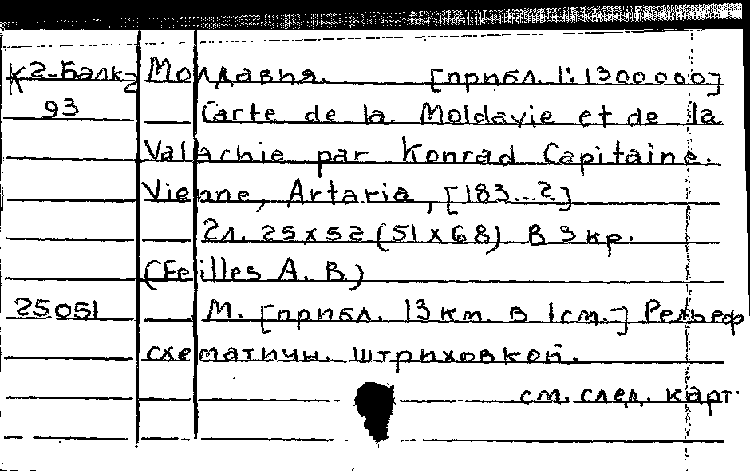 К2-Балк2 Молдавия. [прибл. 1:1300000]
93 Carte de la Moldavie et de la
Valachie par Konrad Capitaine.
Vienne, Artaria, [183..?]
2л. 25x52 (51x68) В 3 кр.
(Feilles A. B.)
25051 М. [прибл. 13 км. в 1 см.] Рельеф
схематичн. штриховкой.
см. след. карт.